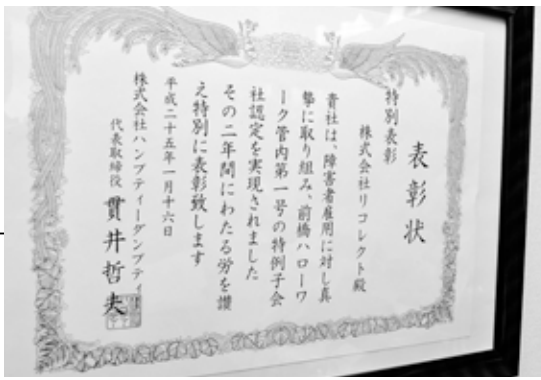 表彰状
特別表彰
株式会社リコレクト殿
貴社は、障害者雇用に対し真
摯に取り組み、前橋ハローワ
ーク管内第一号の特例子会
社認定を実現されました
その二年間にわたる労を讃
え特別に表彰致します
平成二十五年一月十六日
株式会社ハンプティーダンプティー
代表取締役 貫井哲夫